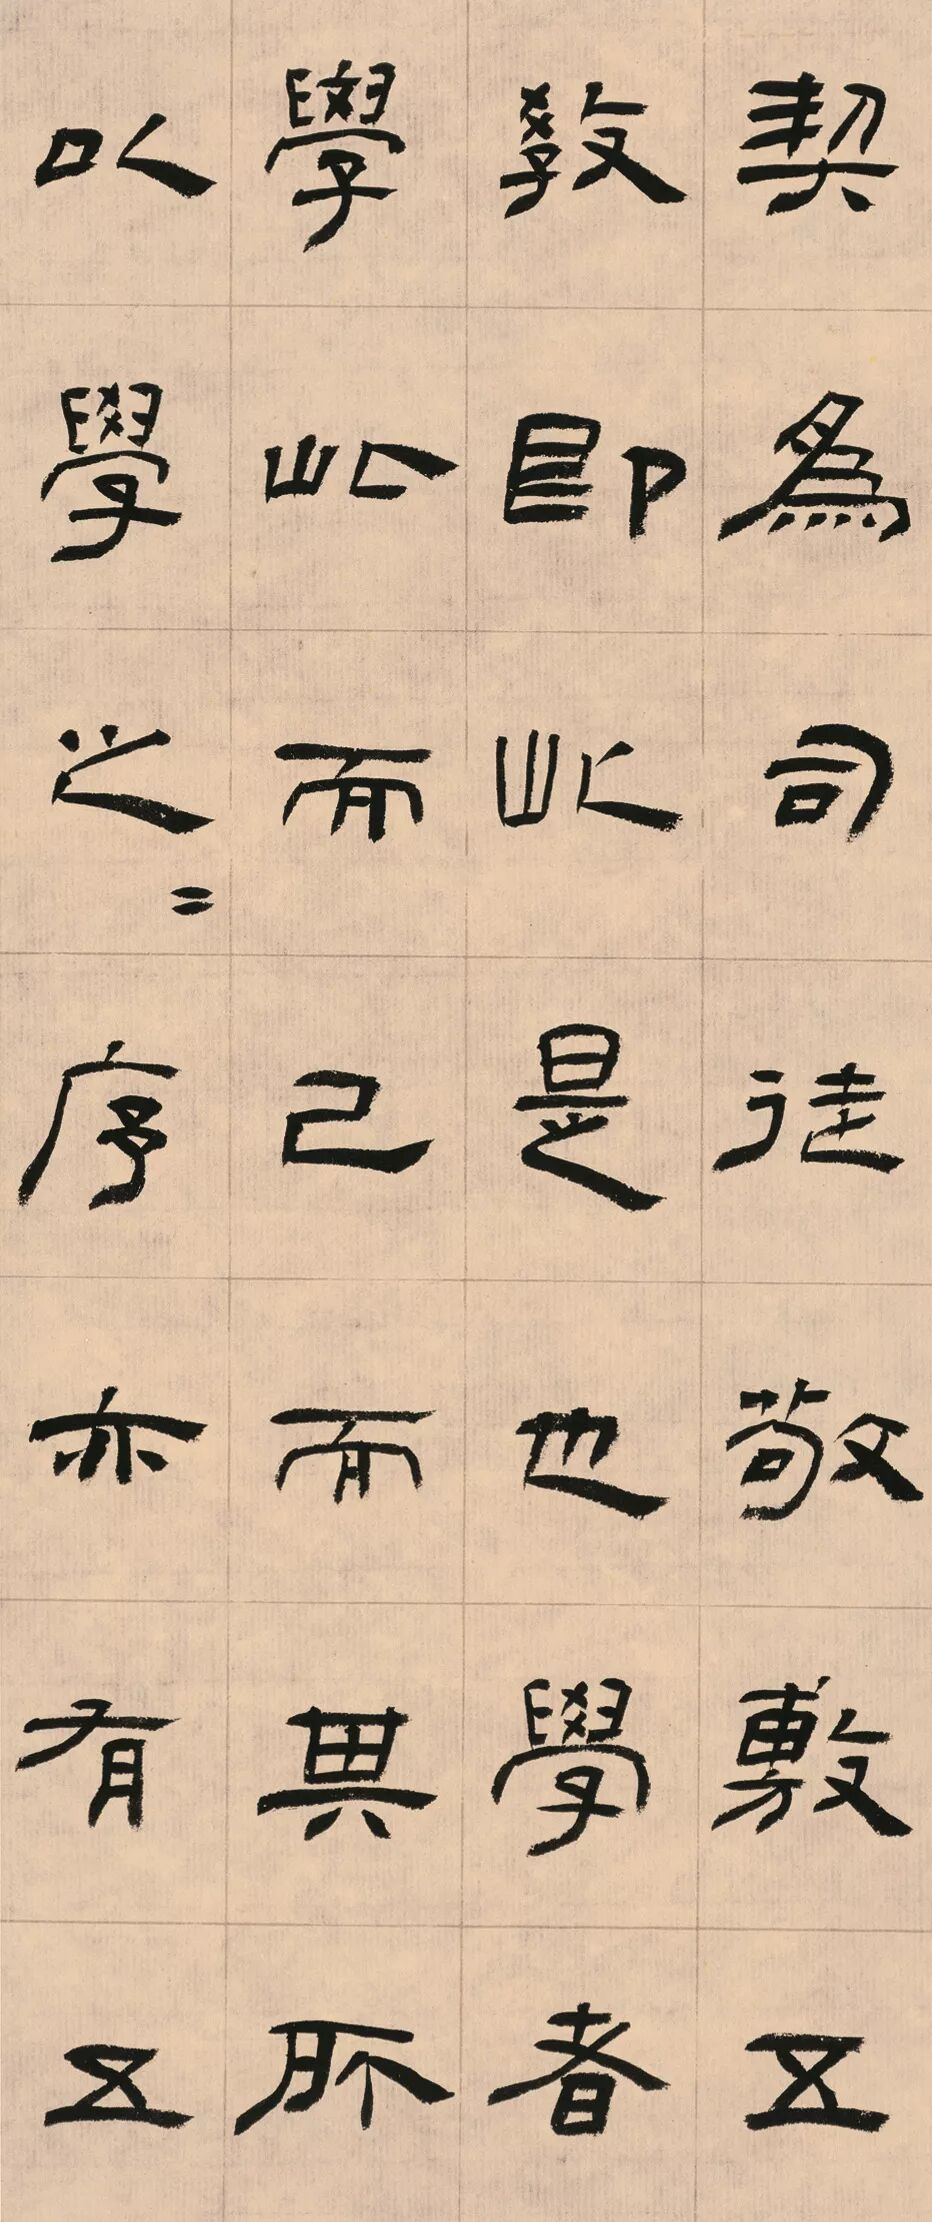 契為司徒敬敷五
教即此是也學者
學此而已而其所
以學之=序亦有五